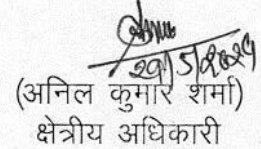 29/5/2024
(अनिल कुमार शर्मा)
क्षेत्रीय अधिकारी